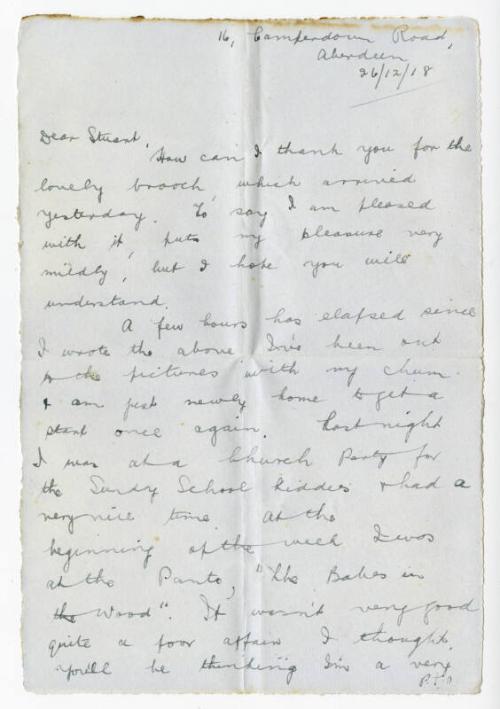 16, Camperdown Road,
Aberdeen
26/12/18
Dear Stuart,
How can I thank you for the
lovely brooch, which arrived
yesterday. To say I am pleased
with it, puts my pleasure very
mildly, but I hope you will
understand.
A few hours has elapsed since
I wrote the above. I've been out
to the pictures with my chum
& am just newly home to get a
start once again. Last night
I was at a Church Party for
the Sunday School kiddies & had a
very nice time. At the
beginning of the week I was
at the Panto, "The Babes in
the Wood". It wasn't very good
quite a poor affair I thought.
You'll be thinking I'm a very
P.T.O